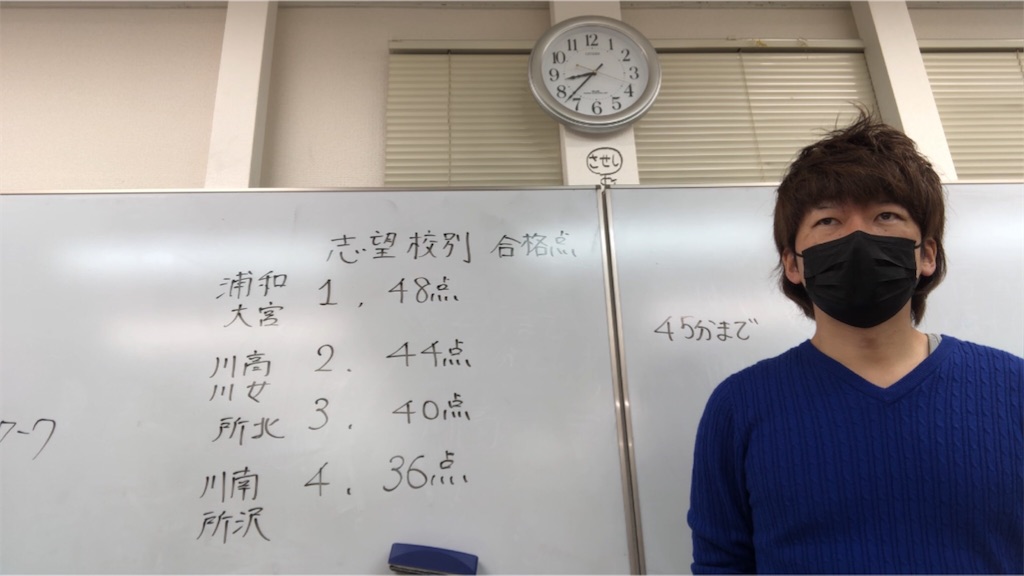 12
11 1
10 2
9 3
8 4
7 5
6
させし
志望校別 合格点
浦和
大宮
1. 48点
川高
川女
2. 44点
所北 3. 40点
川南
所沢
4. 36点
45分まで
ワーク